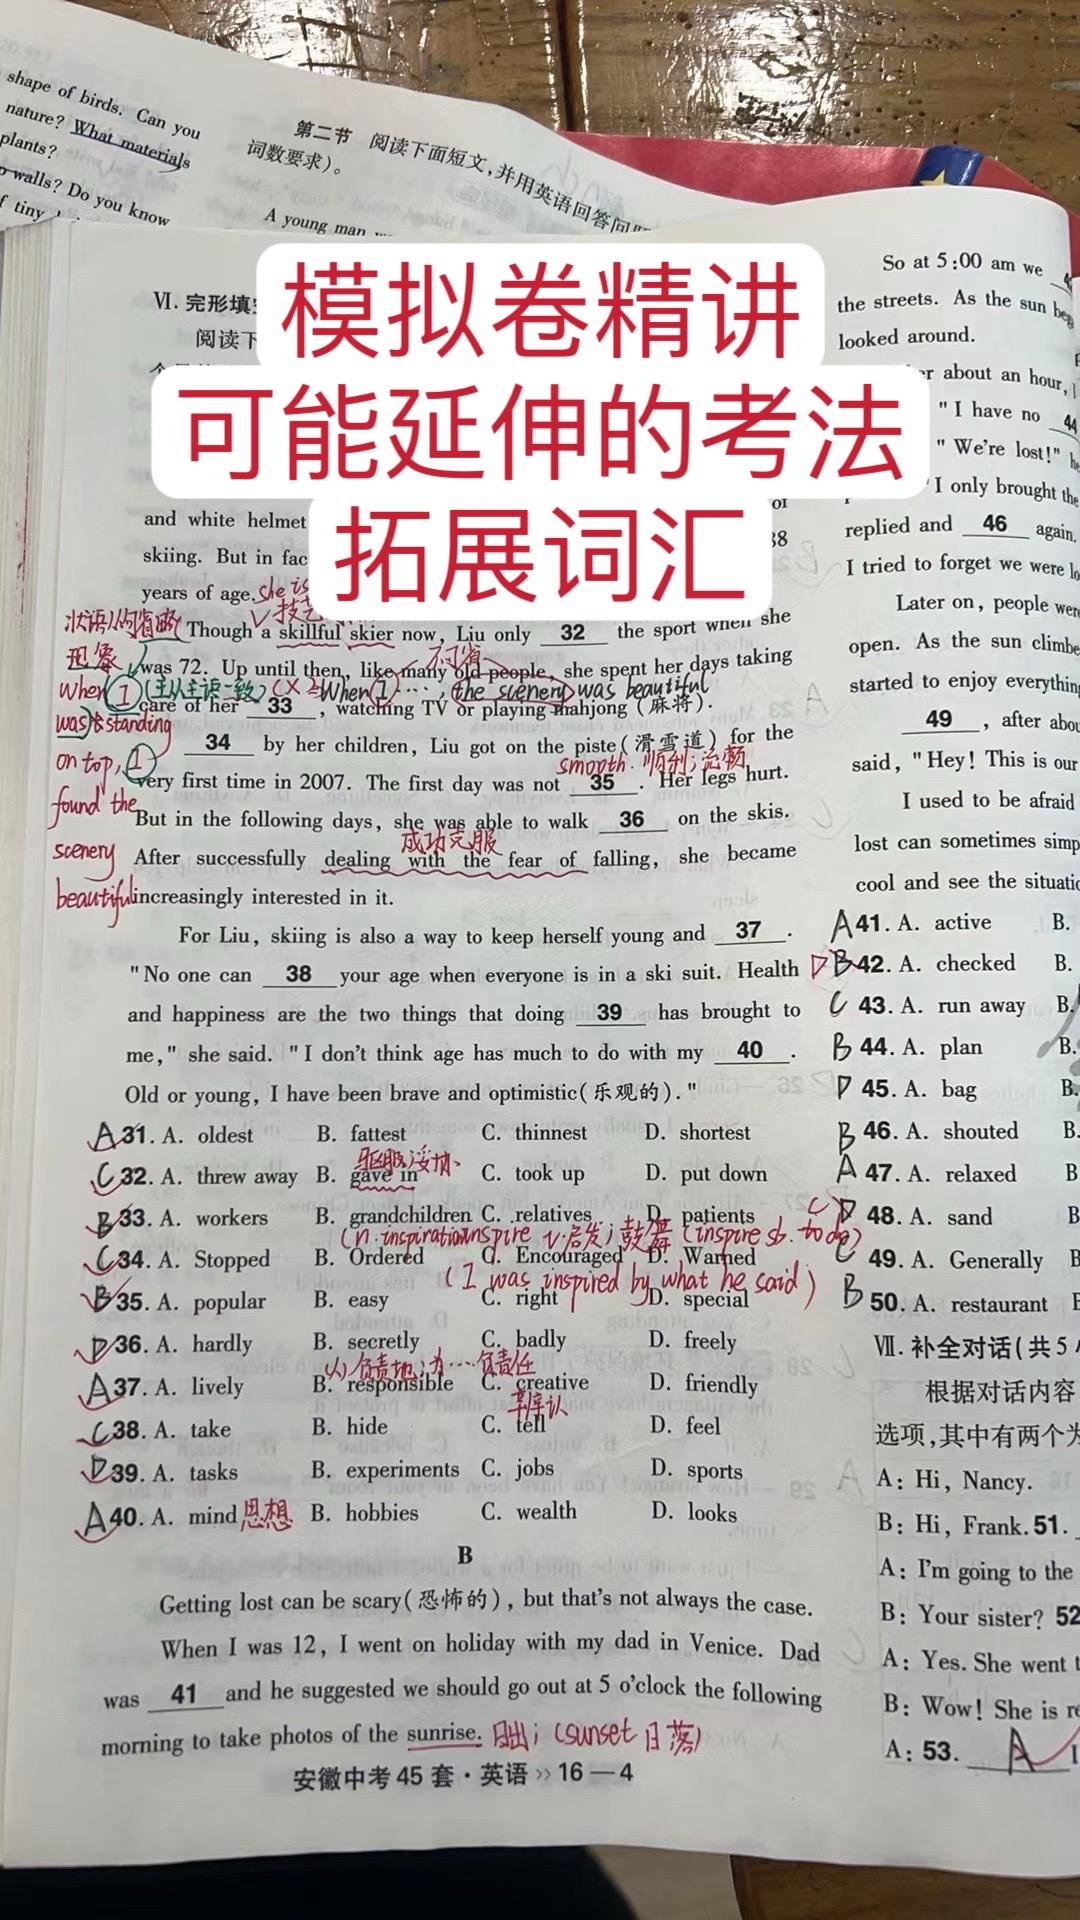 shape of birds. Can you
nature? What materials
plants?
walls? Do you know
f tiny
第二节 阅读下面短文,并用英语回答问题
词数要求)。
A young man
模拟卷精讲
可能延伸的考法
拓展词汇
Ⅵ. 完形填空
阅读下
and white helmet
of
skiing. But in fac
88
years of age. she is
技艺
状语从句省略
现象
when I (主从主语一致) (× When I …, the scenery was beautiful
was) standing
on top, I
found the
scenery
beautiful
不可省
Though a skillful skier now, Liu only 32 the sport when she
was 72. Up until then, like many old people, she spent her days taking
care of her 33 , watching TV or playing mahjong (麻将).
34 by her children, Liu got on the piste(滑雪道) for the
smooth. 顺利;流畅
very first time in 2007. The first day was not 35 . Her legs hurt.
But in the following days, she was able to walk 36 on the skis.
成功克服
After successfully dealing with the fear of falling, she became
increasingly interested in it.
For Liu, skiing is also a way to keep herself young and 37 .
"No one can 38 your age when everyone is in a ski suit. Health
and happiness are the two things that doing 39 has brought to
me," she said. "I don't think age has much to do with my 40 .
Old or young, I have been brave and optimistic(乐观的)."
A 31. A. oldest B. fattest C. thinnest D. shortest
屈服;妥协
C 32. A. threw away B. gave in C. took up D. put down
B 33. A. workers B. grandchildren C. relatives D. patients
(n. inspiration inspire v. 启发;鼓舞 (inspire sb. to do)
C 34. A. Stopped B. Ordered C. Encouraged D. Warned
(I was inspired by what he said)
B 35. A. popular B. easy C. right D. special
D 36. A. hardly B. secretly C. badly D. freely
负责地;为…负责任
A 37. A. lively B. responsible C. creative D. friendly
辨认
C 38. A. take B. hide C. tell D. feel
D 39. A. tasks B. experiments C. jobs D. sports
A 40. A. mind 思想 B. hobbies C. wealth D. looks
B
Getting lost can be scary(恐怖的), but that's not always the case.
When I was 12, I went on holiday with my dad in Venice. Dad
was 41 and he suggested we should go out at 5 o'clock the following
morning to take photos of the sunrise. 日出; (sunset 日落)
安徽中考45套·英语》16—4
So at 5:00 am we
the streets. As the sun
looked around.
about an hour,
"I have no 44
"We're lost!"
I only brought the
replied and 46 again.
I tried to forget we were
Later on, people were
open. As the sun climbe
started to enjoy everything
49 , after abou
said, "Hey! This is our
I used to be afraid
lost can sometimes simp
cool and see the situatio
A 41. A. active B.
D B 42. A. checked B.
C 43. A. run away B.
B 44. A. plan B.
D 45. A. bag B.
B 46. A. shouted B.
A 47. A. relaxed B
C D 48. A. sand B
C 49. A. Generally B
B 50. A. restaurant B
Ⅶ. 补全对话(共5
根据对话内容
选项,其中有两个为
A: Hi, Nancy.
B: Hi, Frank. 51.
A: I'm going to the
B: Your sister? 52
A: Yes. She went t
B: Wow! She is re
A: 53. A I